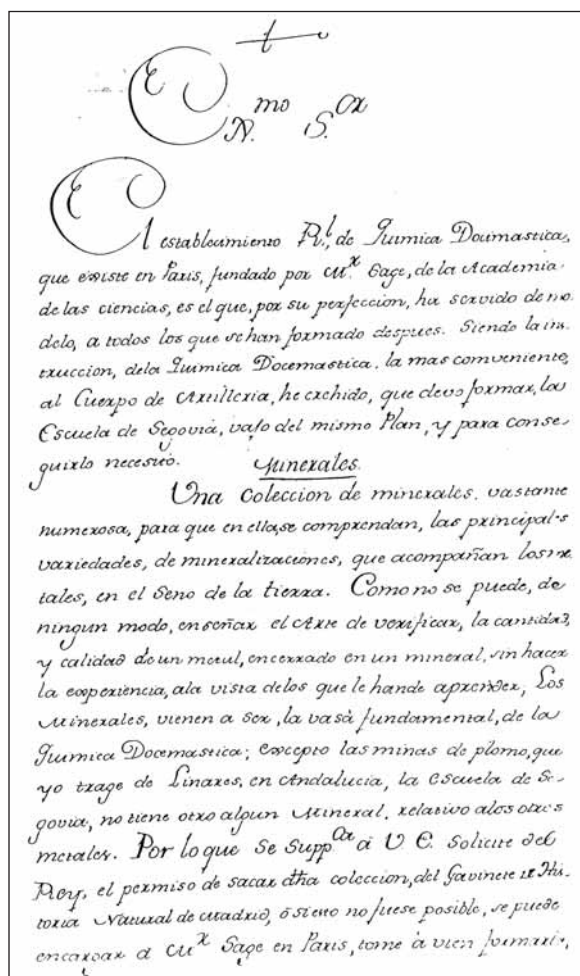 Exmo Sor
El establecimiento Rl, de Quimica Docimastica,
que existe en Paris, fundado por Mr. Sage, de la Academia
de las ciencias, es el que, por su perfeccion, ha servido de mo-
delo, a todos los que se han formado despues. Siendo la ins
truccion, dela Quimica Docemastica, la mas comveniente,
al Cuerpo de Artilleria, he crehido, que devo formar, la
Escuela de Segovia, vajo del mismo Plan, y para conse-
guirlo necesito.
Minerales.
Una Coleccion de minerales, vastante
numerosa, para que en ella, se comprendan, las principals
variedades, de mineralizaciones, que acompañan los me
tales, en el Seno de la tierra. Como no se puede, de
ningun modo, enseñar el Arte de verificar, la cantidad,
y calidad de un metal, encerrado en un mineral, sin hacer
la experiencia, ala vista delos que le hande aprender; Los
Minerales, vienen a ser, la vasa fundamental, de la
Quimica Docemastica; excepto las minas de plomo, que
yo trage de Linares, en Andalucia, la Escuela de Se-
govia, no tiene otro algun Mineral, relativo alos otros
metales. Por lo que Se Suppca á V E. Solicite del
Rey, el permiso de sacar dha coleccion, del Gavinete de His-
toria Natural de Madrid, ó si esto no fuese posible, se puede
encargar á Mr Sage en Paris, tome à vien formarla,